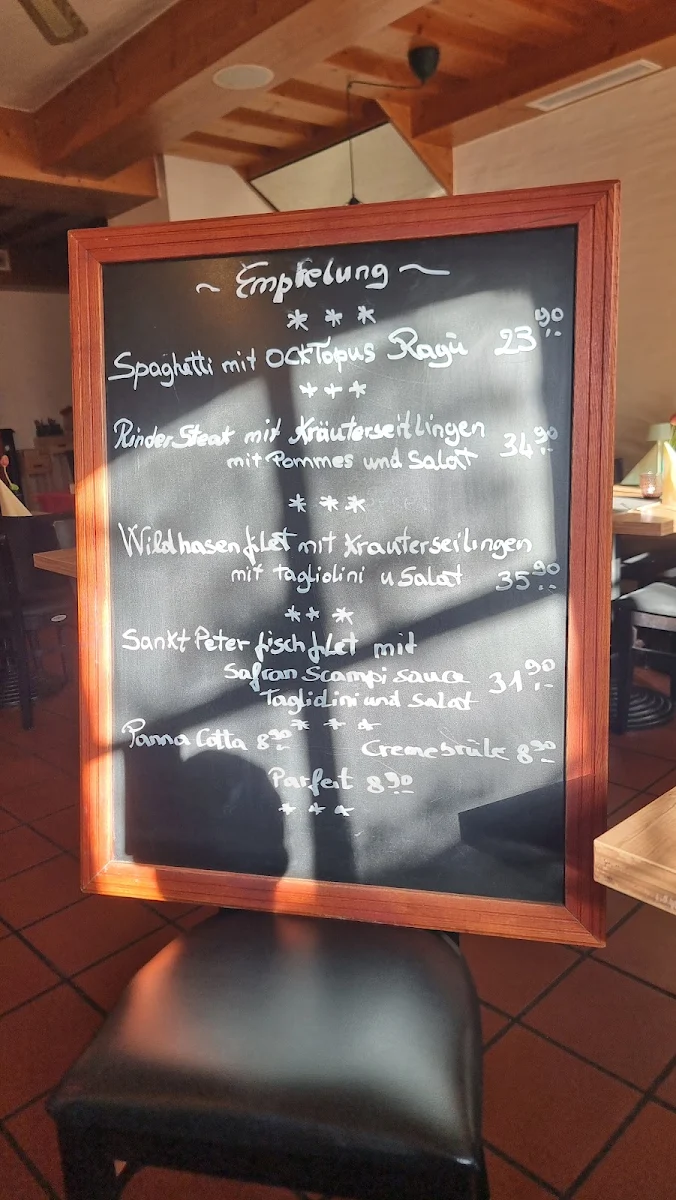 ~ Empfelung ~
* * *
Spaghetti mit OCKTopus Ragù 23,90
* * *
Rinder Steak mit Kräuterseitlingen
mit Pommes und Salat 34,90
* * *
Wildhasenfilet mit Krauterseilingen
mit tagliolini u Salat 35,90
* * *
Sankt Peter fisch filet mit
Safran Scampi sauce 31,90
Tagliolini und Salat
* * *
Panna Cotta 8,90 Cremebrüle 8,90
Parfait 8,90
* * *